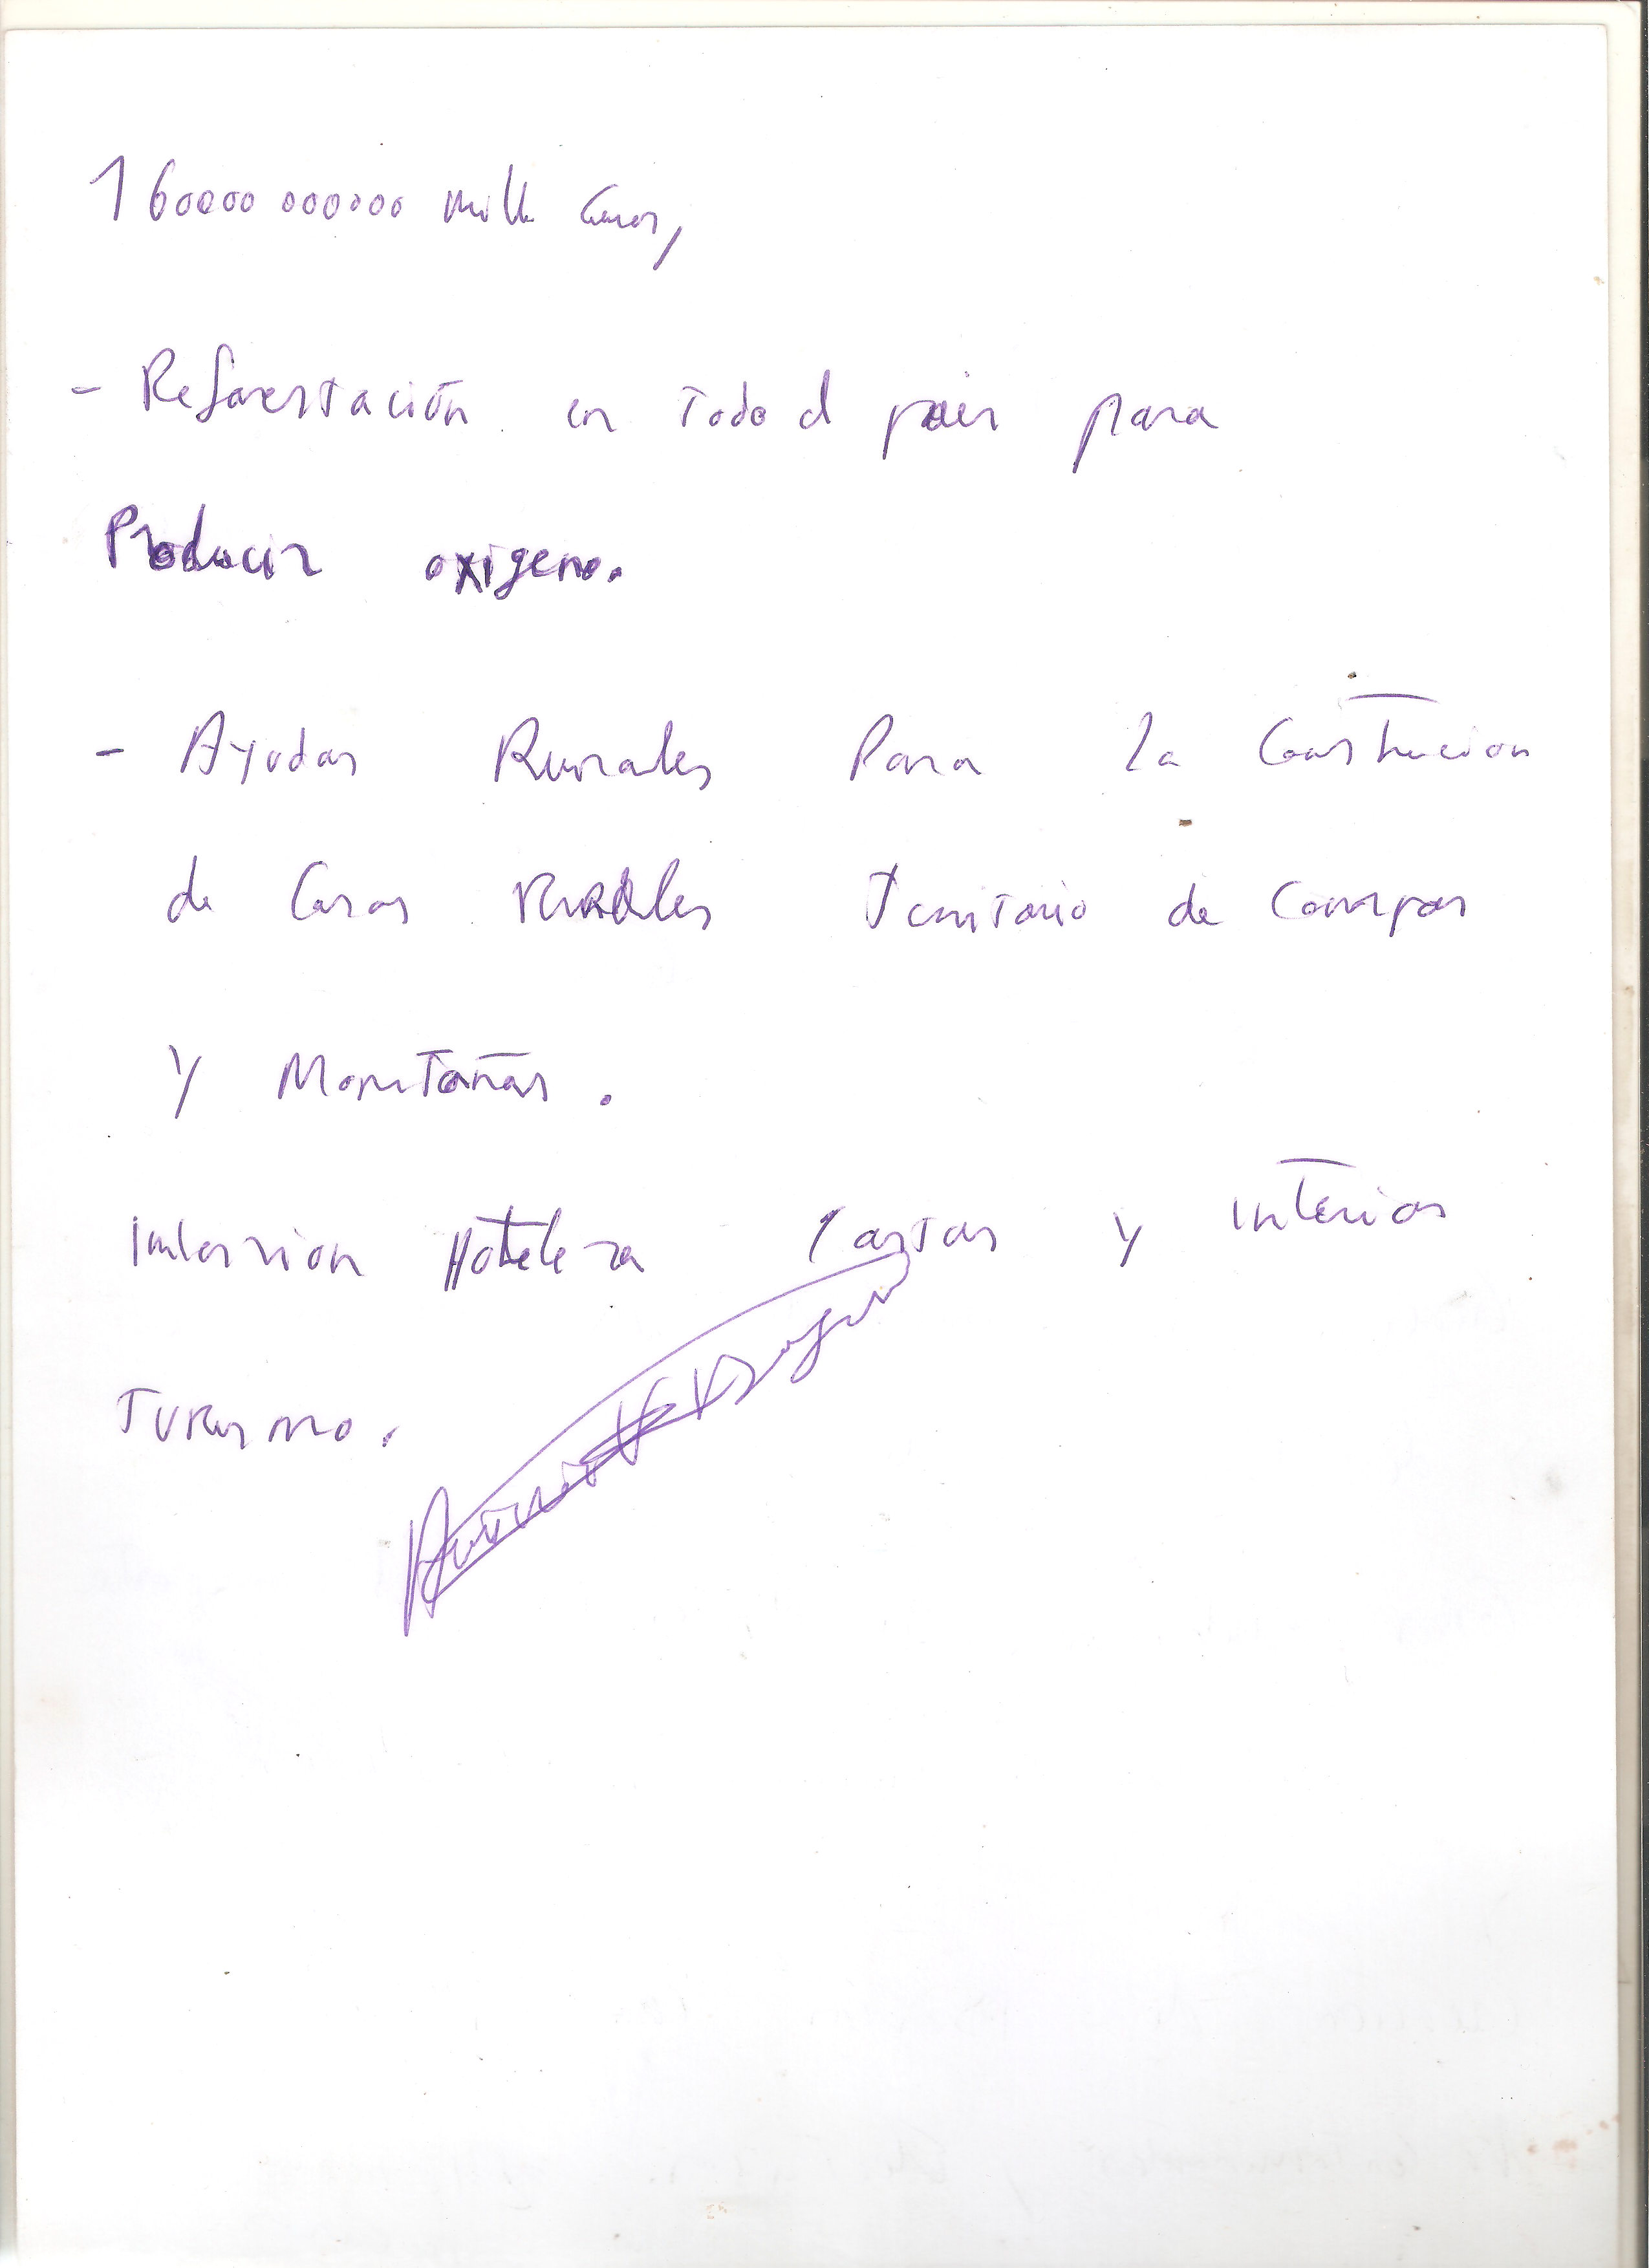 160000 000000 mill Euros,
- Reforestación en Todo el pais para
Producir oxigeno.
- Ayudas Rurales Para la Construcion
de Casas Rurales Territorio de Campos
Y Montañas.
Inversion Hotelera Costas y interior
Turismo.